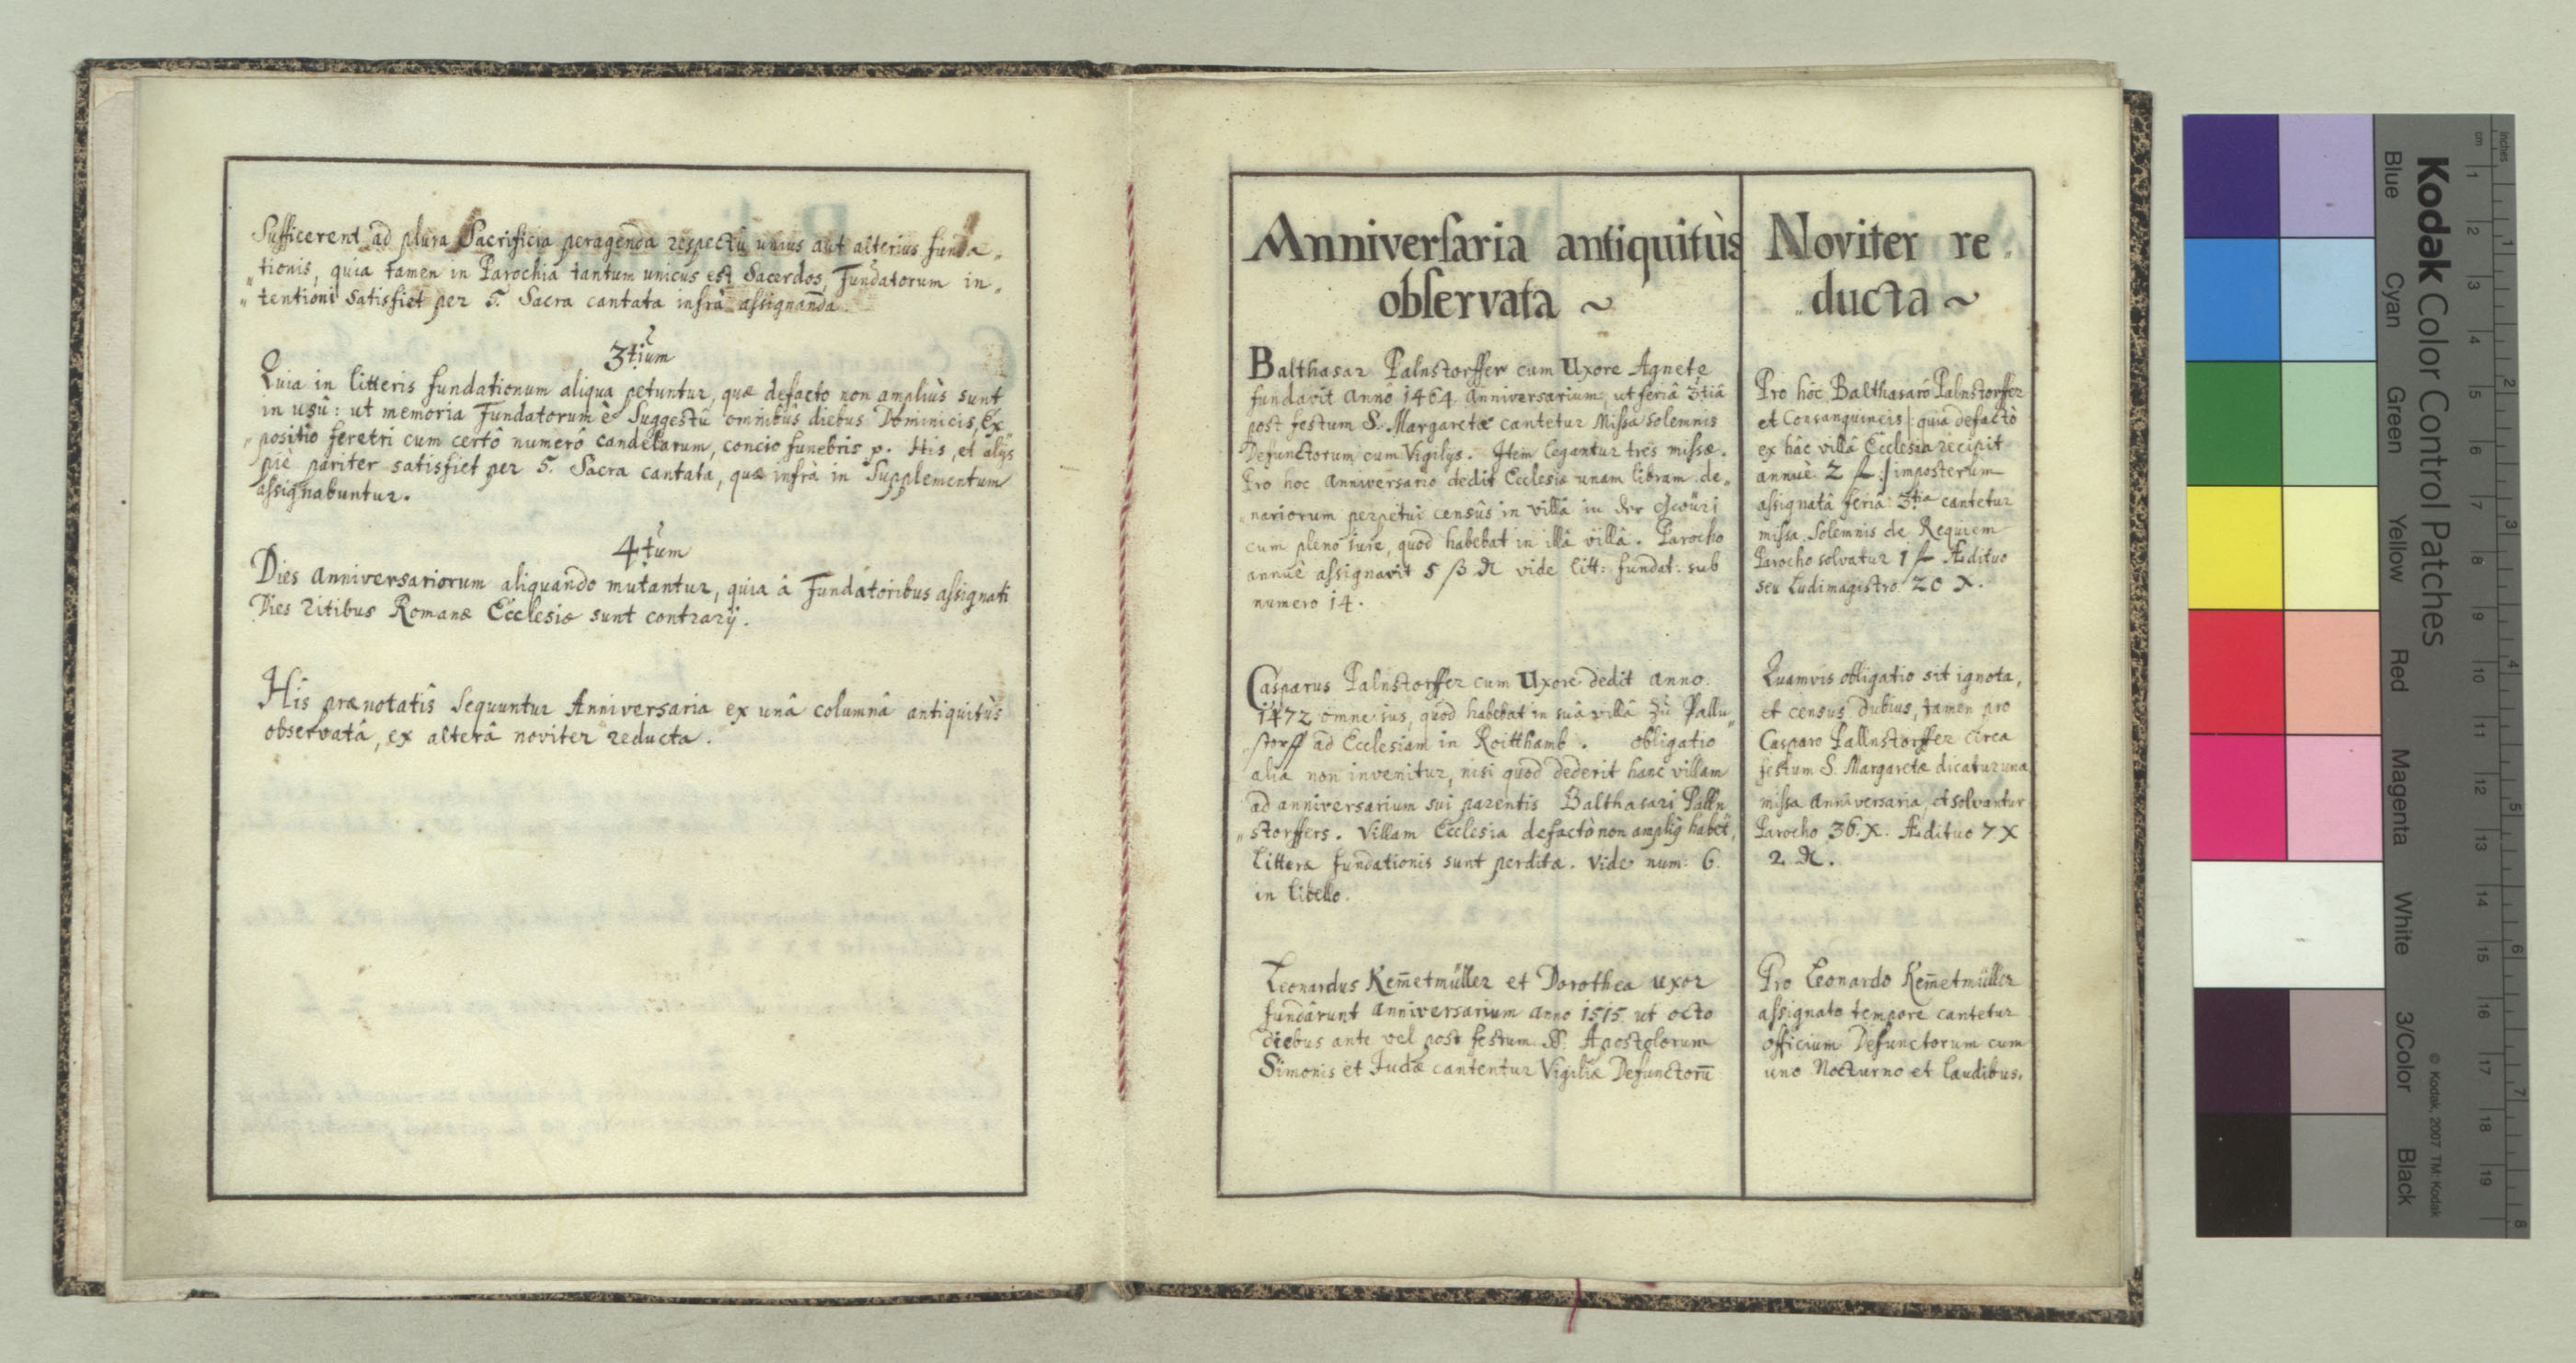 Sufficerent ad plura Sacrificia peragenda respectû unius aut alterius funda„
„tionis, quia tamen in Parochia tantum unicus est Sacerdos, Fundatorum in„
„tentioni satisfiet per 5. Sacra cantata infrà assignanda.
3tium
Quia in litteris fundationum aliqua petuntur, quæ defacto non ampliùs sunt
in usû: ut memoria Fundatorum è Suggestû omnibûs diebus Dominicis, Ex„
„positio feretri cum certô numerô candelarum, concio funebris p. His, et alijs
piè pariter satisfiet per 5. Sacra cantata, quæ infrà in Supplementum
assignabuntur.
4tum
Dies Anniversariorum aliquando mutantur, quia â Fundatoribus assignati
Dies ritibus Romanæ Ecclesiæ sunt contrarij.
His prænotatis Sequuntur Anniversaria ex unâ columnâ antiquitùs
observatâ, ex alterâ noviter reducta.
Anniversaria antiquitùs
observata ~
Balthasar Palnstorffer cum Uxore Agnete
fundavit Annô 1464 Anniversarium, ut feriâ 3tiâ
post festum S. Margaretæ cantetur Missa solemnis
Defunctorum cum Vigilijs. Item legantur tres missæ.
Pro hoc Anniversario dedit Ecclesiæ unam libram de„
„nariorum perpetui censûs in villâ in der
cum pleno iure, quod habebat in illâ villâ. Parocho
annuè assignavit 5 β ₰ vide litt: fundat: sub
numero 14.
Casparus Palnstorffer cum Uxore dedit Anno
1472 omne ius, quod habebat in suâ villâ zu Palln„
„storff ad Ecclesiam in Roitthamb. obligatio
alia non invenitur, nisi quod dederit hanc villam
ad anniversarium sui parentis Balthasari Palln
„storffers. Villam Ecclesia defactò non ampliꝰ habet,
litteræ fundationis sunt perditæ. Vide num: 6.
in libello.
Leonardus Kem̄etmüller et Dorothea uxor
fundârunt Anniversarium Anno 1515 ut octo
diebus ante vel post festum SS. Apostolorum
Simonis et Judæ cantentur Vigiliæ Defunctorū
Noviter re„
„ducta ~
Pro hôc Balthasarô Palnstorffer
et Consanguineis |: quia defactò
ex hâc villâ Ecclesia recipit
annuè 2 fl :| imposterum
assignatâ feriâ 3tia cantetur
missa Solemnis de Requiem
Parocho solvatur 1 fl Ædituo
seu Ludimagistro 20 X.
Quamvis obligatio sit ignota,
et census dubius, tamen pro
Casparo Pallnstorffer circa
festum S. Margaretæ dicatur una
missa Anniversaria, et solvantur
Parocho 36. X. Ædituo 7 X
2 ₰.
Pro Leonardo Kem̄etmüller
assignato tempore cantetur
officium Defunctorum cum
uno Nocturno et Laudibus.
Kodak Color Control Patches
Blue Cyan Green Yellow Red Magenta White 3/Color Black
© Kodak, 2007 TM: Kodak
cm 1 2 3 4 5 6 7 8 9 10 11 12 13 14 15 16 17 18 19
Inches 1 2 3 4 5 6 7 8